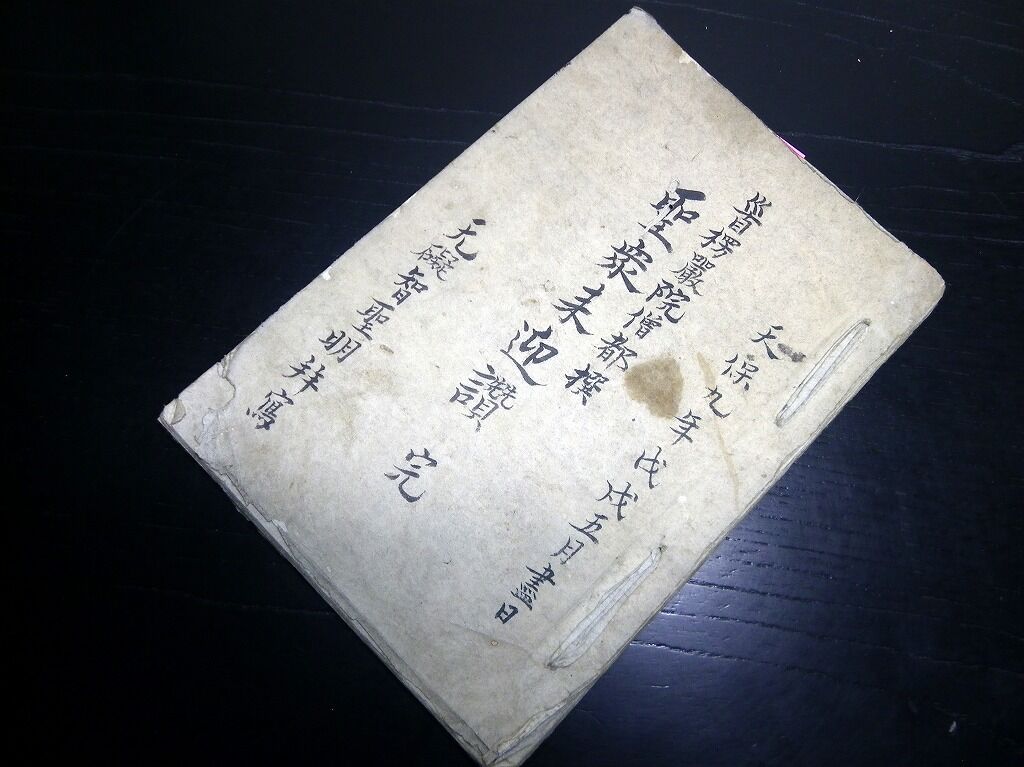 天保九年戊戌五月盡日
首楞嚴院僧都撰
聖衆来迎讚 完
无礙智聖明拜寫